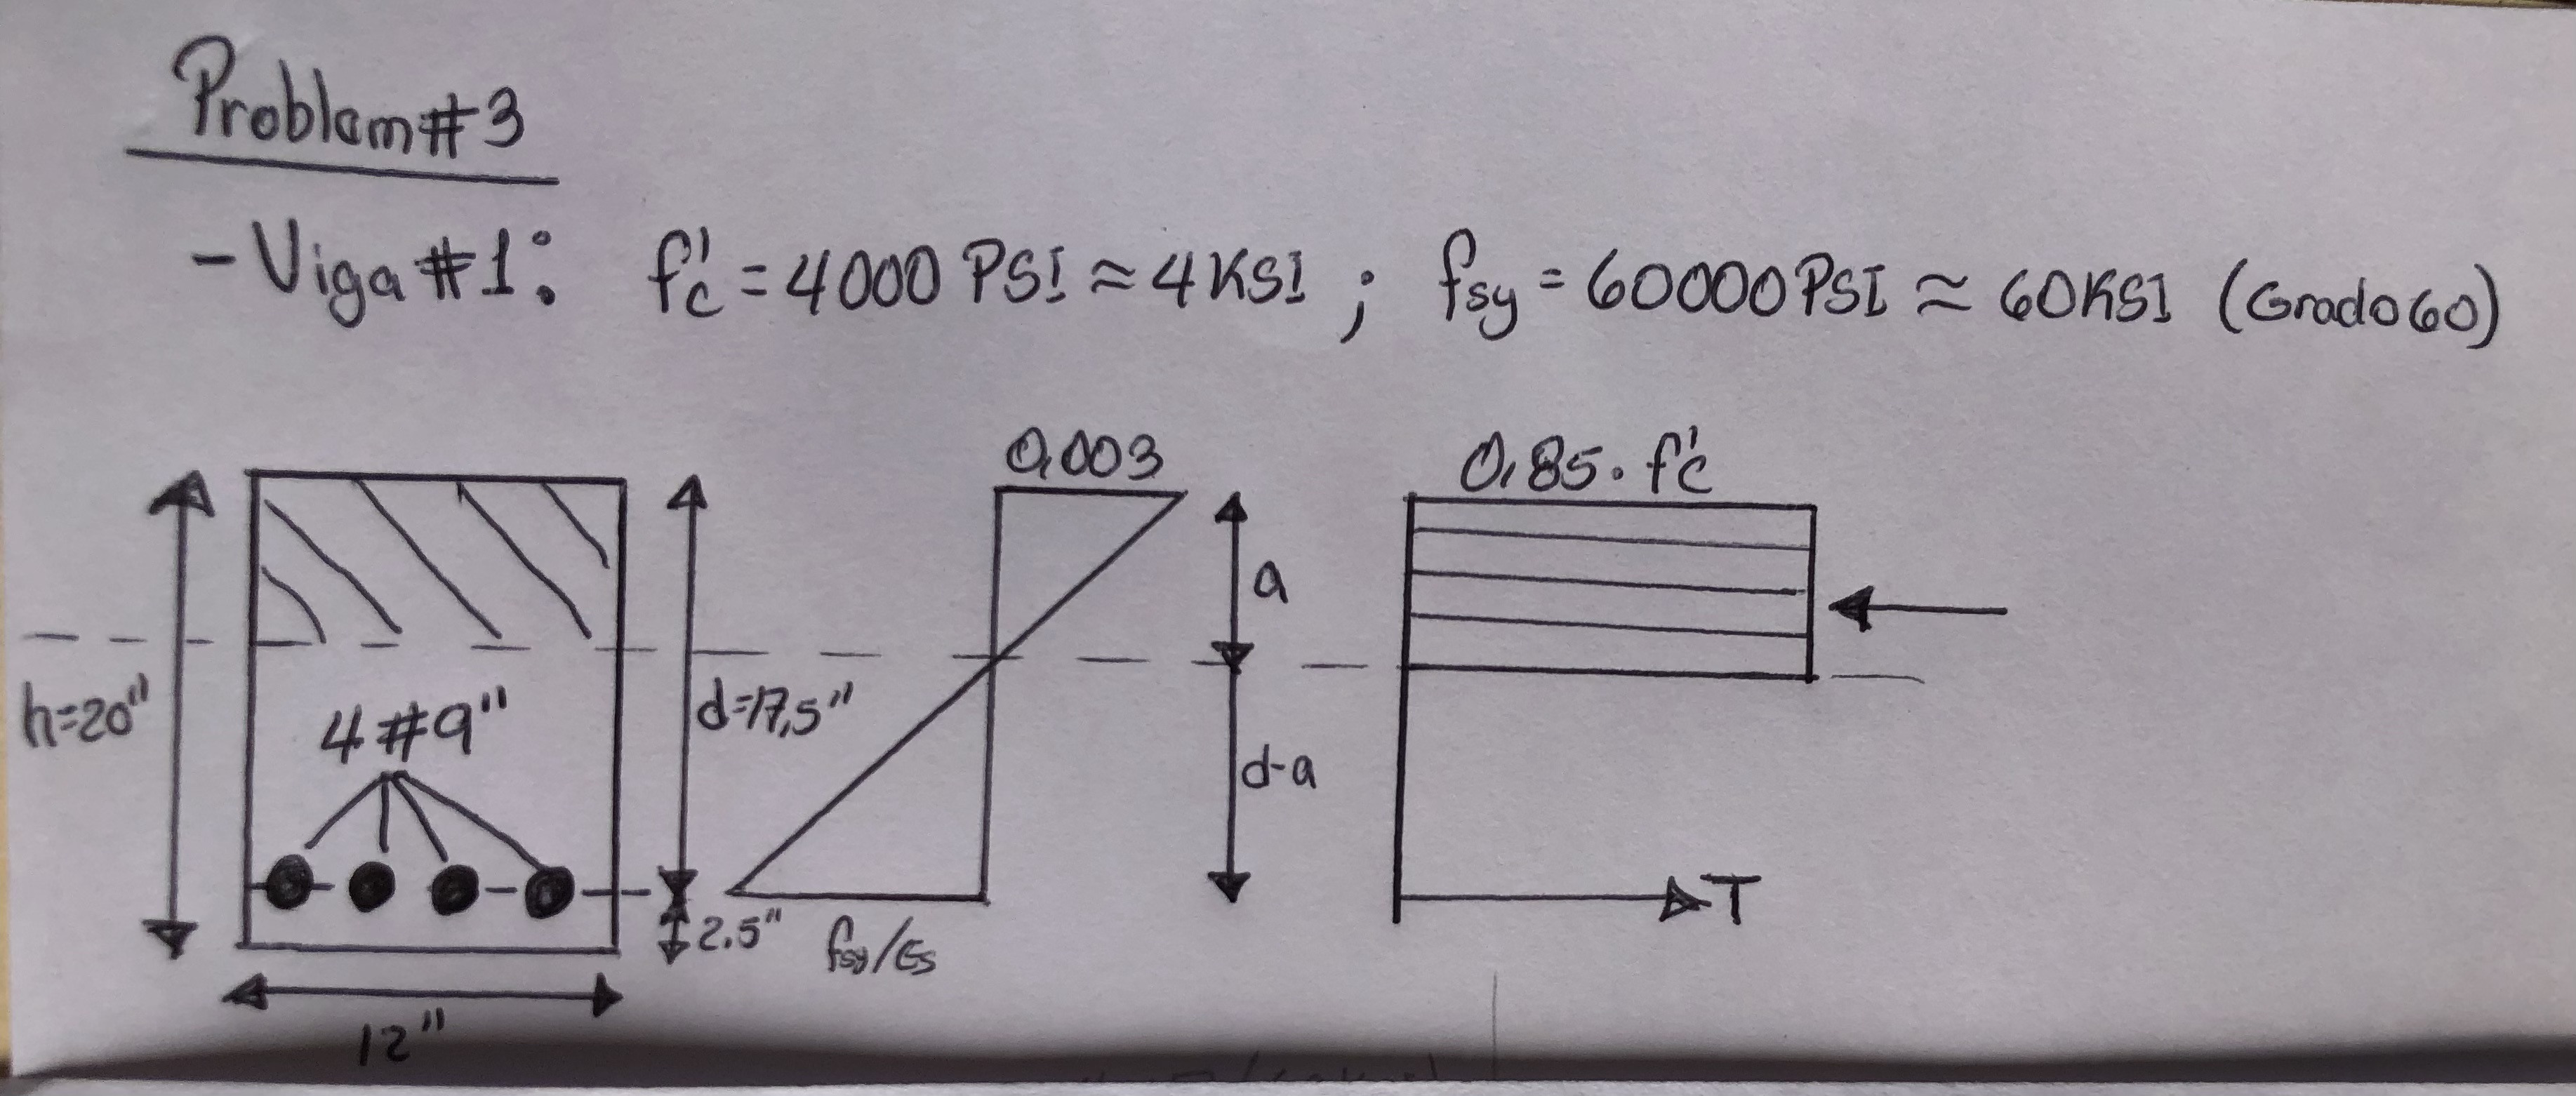 Problem #3
- Viga #1: f'c = 4000 PSI ≈ 4 KSI ; fsy = 60000 PSI ≈ 60 KSI (Grado 60)
0,003
0,85 · f'c
a
h=20"
4 #9"
d=17,5"
d-a
T
2.5"
fsy/Es
12"